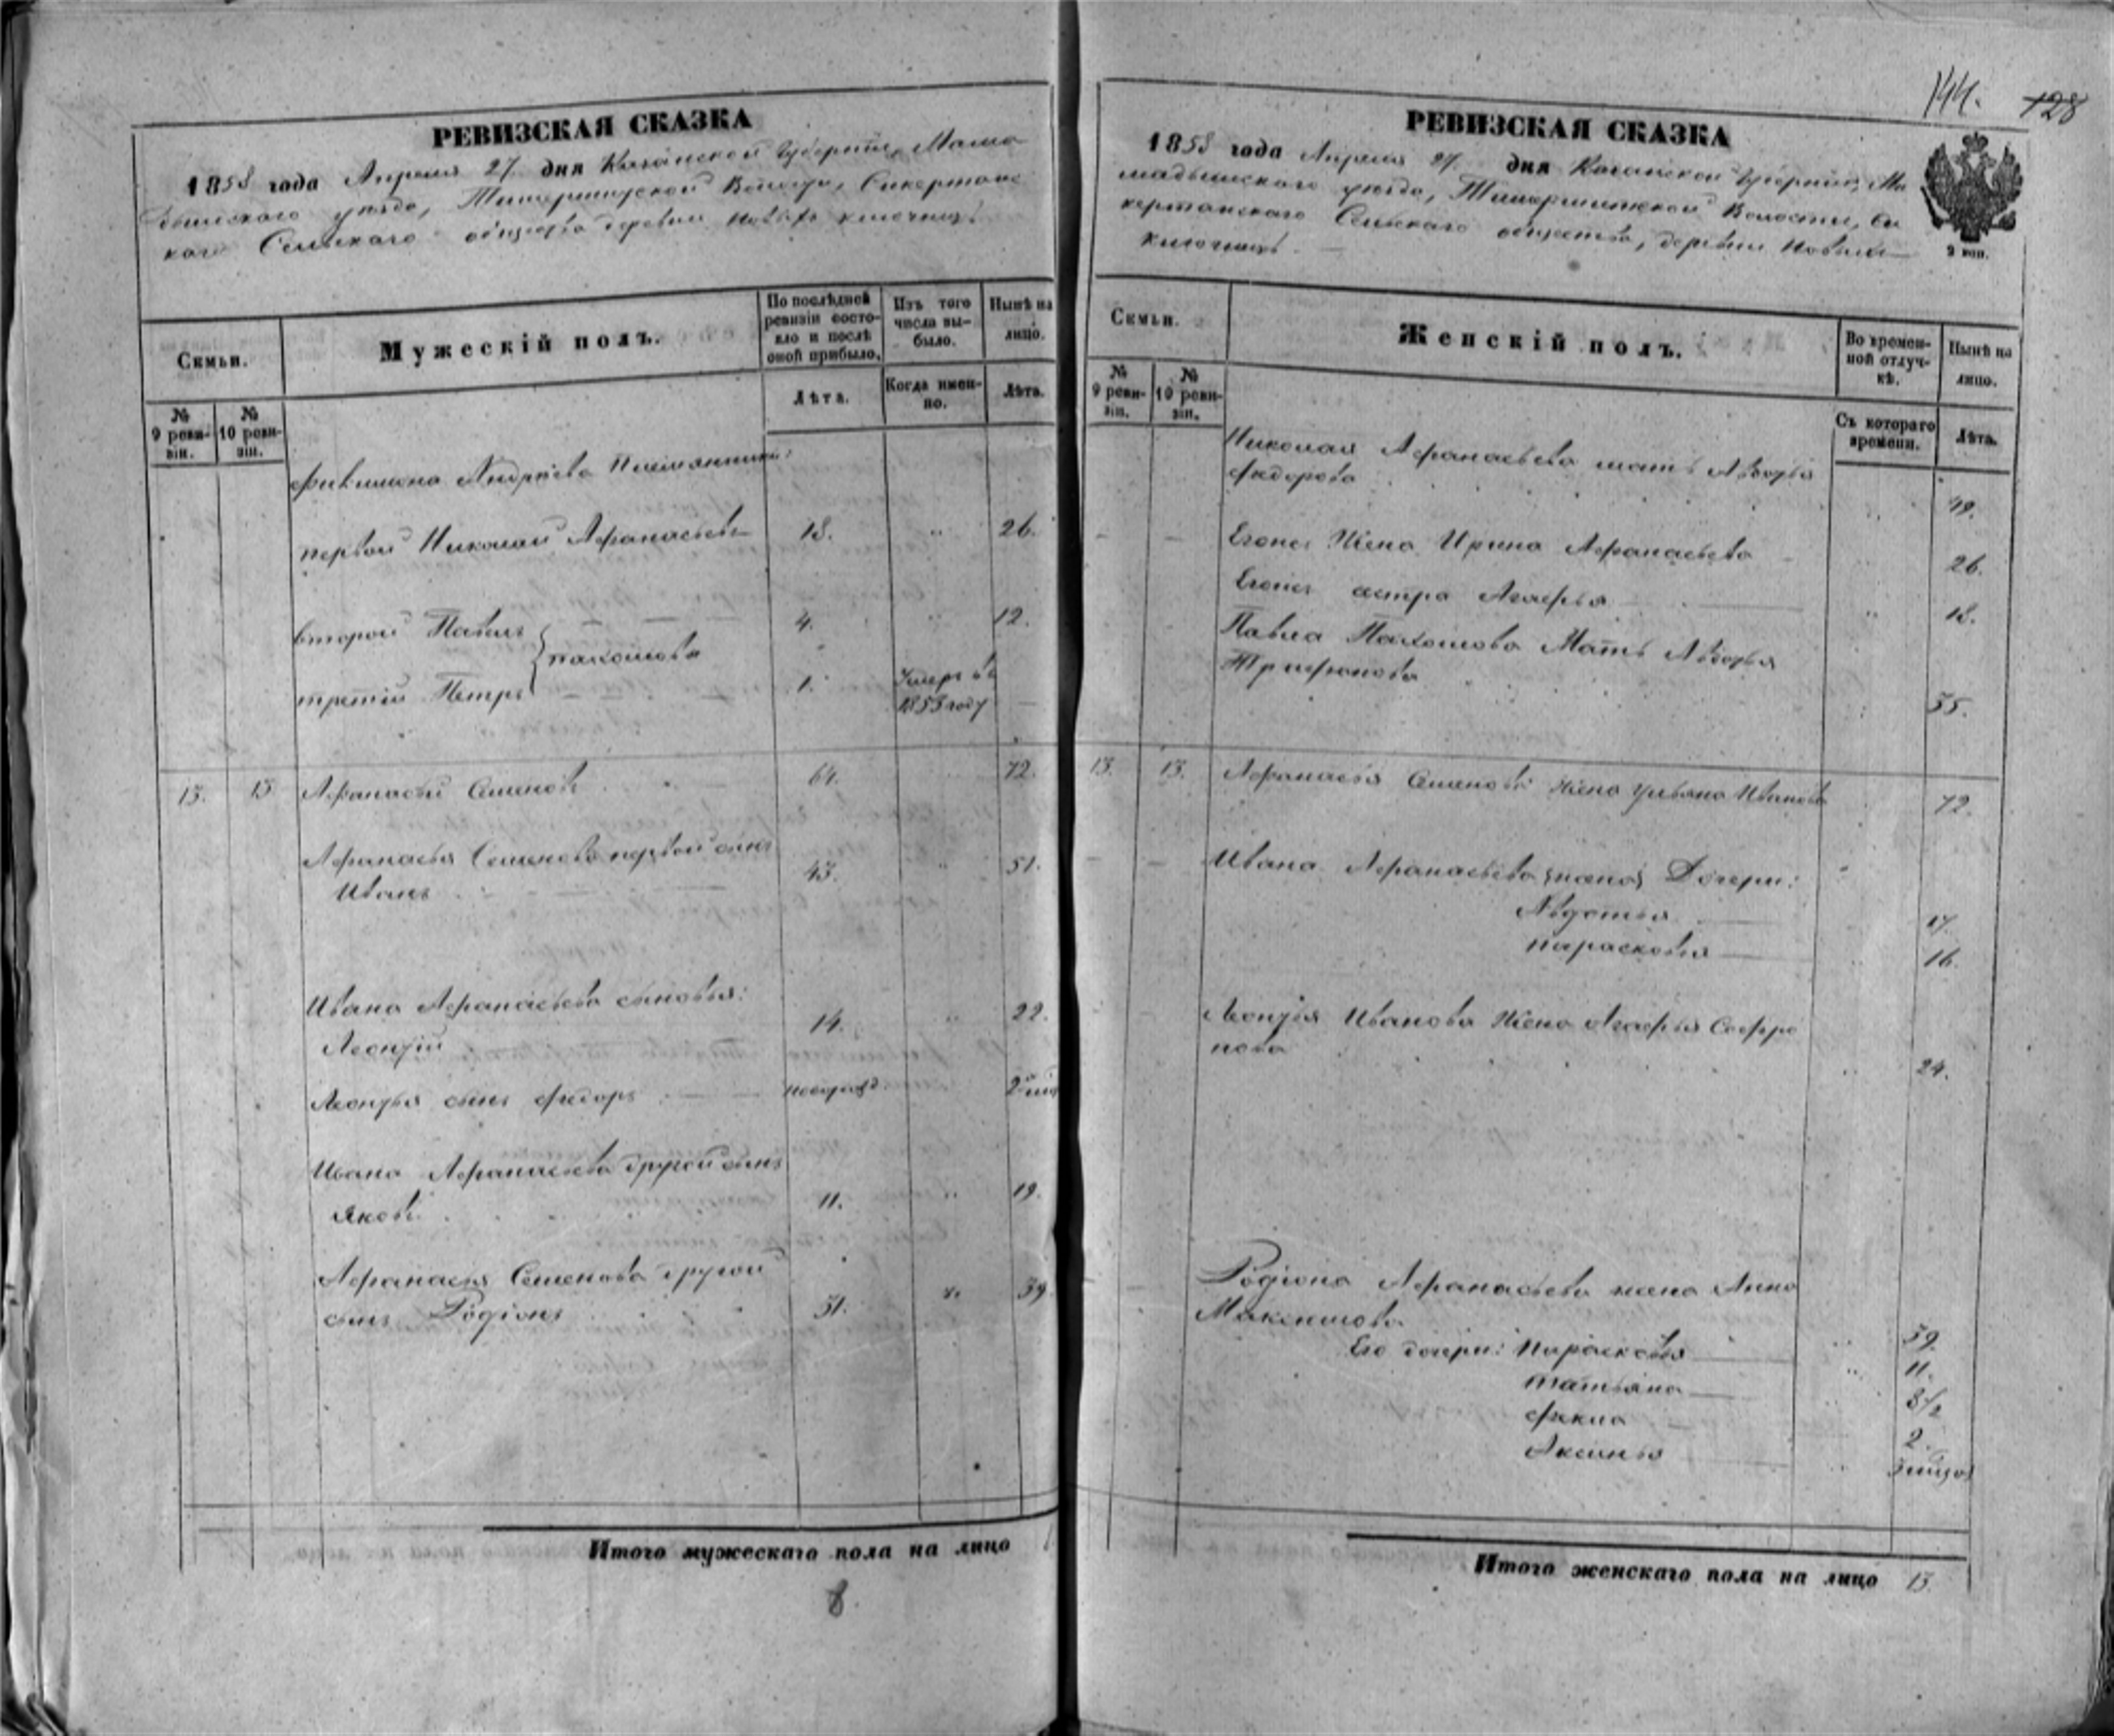 РЕВИЗСКАЯ СКАЗКА
1858 года Апреля 27 дня Казанской Губернии, Мама
дышскаго уезда, Волости,
каго Сельскаго общества деревни Новыхъ ключищъ
Семьи.
Мужескій полъ.
По послѣдней
ревизіи состо-
яло и послѣ
оной прибыло.
Изъ того
числа вы-
было.
Нынѣ на
лицо.
Лѣта.
Когда имен-
но.
Лѣта.
№
9 реви-
зіи.
№
10 реви-
зіи.
Филимона Андреева Племянники:
первой Николай Афанасьевъ 18. " 26.
второй Павелъ 4. " 12.
Пахомовы
третий Петръ 1. Умеръ въ
1853 году
13. 13 Афанасий Семеновъ 64. 72.
Афанасья Семенова первой сынъ
Иванъ 43. " 51.
Ивана Афанасьева сыновья:
Леонтій 14. " 22.
Леонтья сынъ Федоръ новорожд
Ивана Афанасьева другой сынъ
Яковъ 11. " 19.
Афанасья Семенова другой
сынъ Родіонъ 31. " 39
Итого мужескаго пола на лицо
8.
144. 128
РЕВИЗСКАЯ СКАЗКА
1858 года Апреля 27. дня Казанской Губернии, Ма
мадышскаго уезда, Волости, Си
кертанскаго Сельскаго общества, деревни Новыхъ
ключищъ
2 коп.
Семьи.
Женскій полъ.
Во времен-
ной отлуч-
кѣ.
Нынѣ на
лицо.
№
9 реви-
зіи.
№
10 реви-
зіи.
Съ котораго
времени.
Лѣта.
Николая Афанасьева мать Авдотья
Федорова 49.
Его Жена Ирина Афанасьева 26.
Его сестра Агафья " 18.
Павла Пахомова Мать Авдотья
Трифонова 35.
13. 13. Афанасья Семенова Жена Ульяна Иванова 72.
Ивана Афанасьева Дочери:
Авдотья 17.
Парасковья 16.
Леонтья Иванова Жена Агафья Софро
нова 24.
Родіона Афанасьева жена Анна
Максимова 39.
Его дочери: Парасковья 11.
Татьяна 8 1/2
Фекла 2.
Аксинья
Итого женскаго пола на лицо 13.